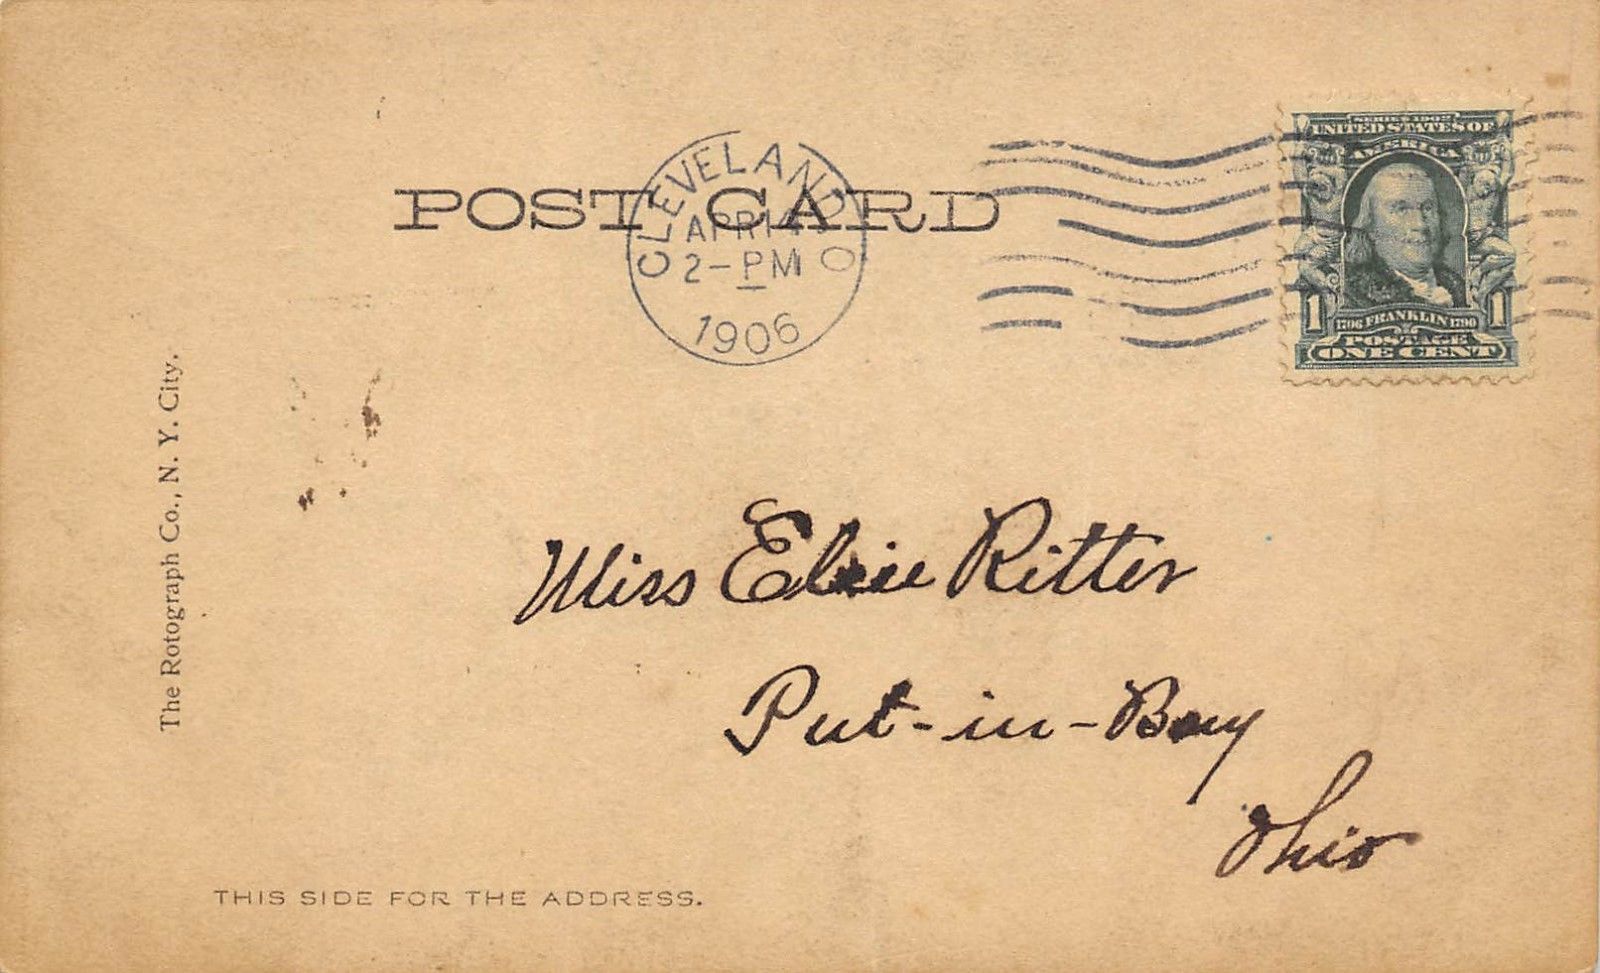 POST CARD
CLEVELAND O
APR 14
2-PM
1906
SERIES 1902
UNITED STATES OF
AMERICA
1 1706 FRANKLIN 1790 1
POSTAGE
ONE CENT
The Rotograph Co., N. Y. City.
Miss Elsie Ritter
Put-in-Bay
Ohio
THIS SIDE FOR THE ADDRESS.